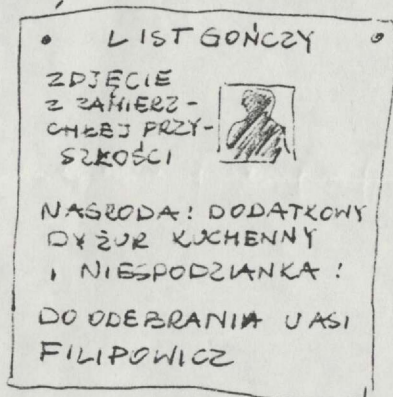 LIST GOŃCZY
ZDJĘCIE
Z ZAMIERZ-
CHŁEJ PRZY-
SZŁOŚCI
NAGRODA: DODATKOWY
DYŻUR KUCHENNY
I NIESPODZIANKA!
DO ODEBRANIA U ASI
FILIPOWICZ